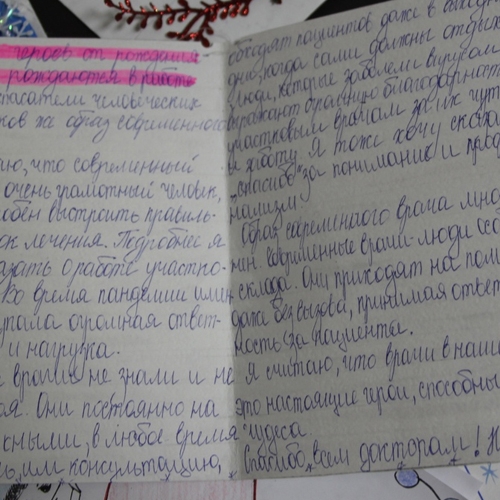 героев от рождения
рождаются в работе
пасатели человеческих
ков же образ современного
аю, что современный
очень грамотный человек,
собен выстроить правиль-
ок лечения. Подробнее я
азать о работе участко-
Во время пандемии имен
упала огромная ответ-
и нагрузка.
врачи не знали и не
ая. Они постоянно на
сными, в любое время
ь, или консультацию,
обходят пациентов даже в выходн
дни, когда сами должны отдых
Люди, которые заболели вирусом
выражают огромную благодарност
участковым врачам за их чут
и заботу. Я тоже хочу сказа
"спасибо" за понимание и проф
нализм.
Образ современного врача мно
нен. Современные врачи-люди осо
склада. Они приходят на пом
даже без вызова, принимая ответ
ность за пациента.
Я считаю, что врачи в наши
это настоящие герои, способны
чудеса.
Спасибо всем докторам!